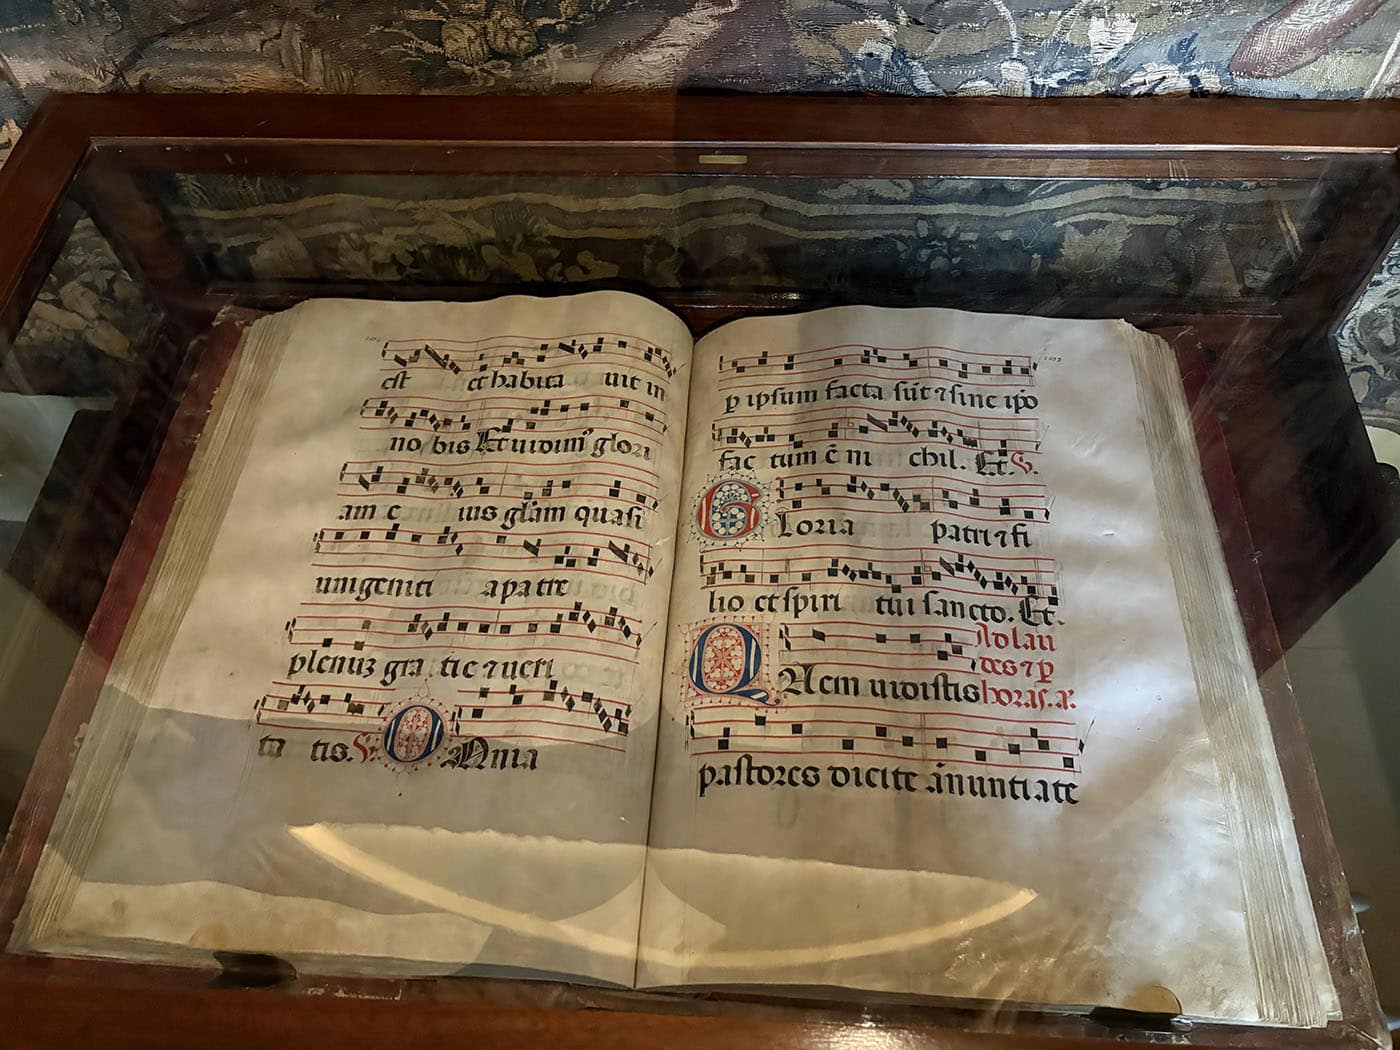 est et habita uit in
no bis Et uidim9 glori
am e ius glam quasi
unigeniti a patre
plenuz gra tie ⁊ ueri
ta tis. V. O Mnia
p ipsum facta sūt ⁊ sine ipo
fac tum ē ni chil. Et. V.
G Loria patri ⁊ fi
lio et spiri tui sancto. Et.
Ad lau
des ⁊ p
Q Uem uidistis horas. a.
pastores dicite ānunti ate